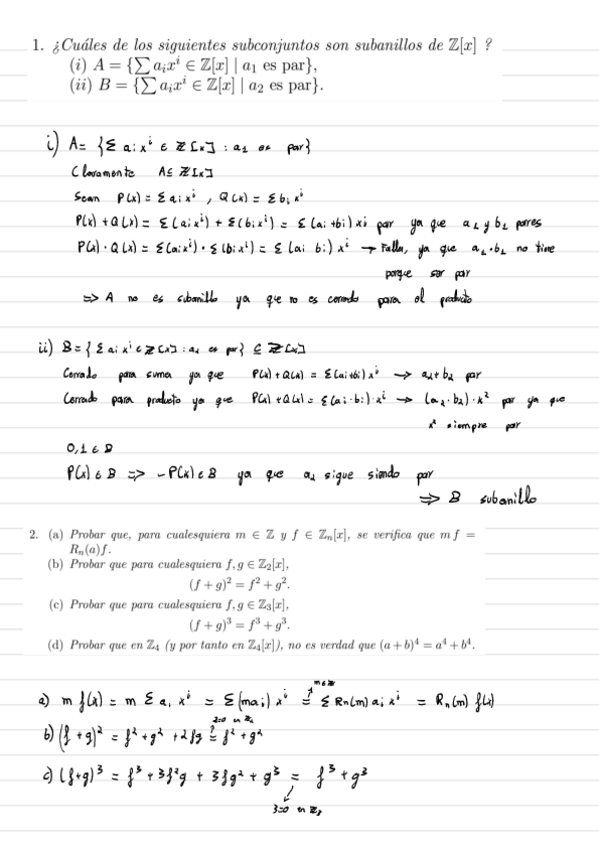 1. ¿Cuáles de los siguientes subconjuntos son subanillos de ℤ[x] ?
(i) A = {∑ aᵢxⁱ ∈ ℤ[x] | a₁ es par},
(ii) B = {∑ aᵢxⁱ ∈ ℤ[x] | a₂ es par}.
i) A= {Σ aᵢxⁱ ∈ ℤ[x] : a₁ es par}
Claramente A⊆ ℤ[x]
Sean P(x) = Σ aᵢxⁱ , Q(x) = Σbᵢxⁱ
P(x) + Q(x) = Σ(aᵢxⁱ) + Σ(bᵢxⁱ) = Σ(aᵢ+bᵢ) xⁱ par ya que a₁ y b₁ pares
P(x) · Q(x) = Σ(aᵢxⁱ) · Σ(bᵢxⁱ) = Σ(aᵢ bᵢ) xⁱ → Falla, ya que a₁·b₁ no tiene
porque ser par
=> A no es subanillo ya que no es cerrado para el producto
ii) B = { Σ aᵢxⁱ ∈ ℤ[x] : a₂ es par} ⊆ ℤ[x]
Cerrado para suma ya que P(x) + Q(x) = Σ(aᵢ+bᵢ) xⁱ → a₂+b₂ par
Cerrado para producto ya que P(x) + Q(x) = Σ(aᵢ·bᵢ)·xⁱ → (a₂·b₂)·x² par ya que
x² siempre par
0,1 ∈ B
P(x) ∈ B => -P(x) ∈ B ya que a₂ sigue siendo par
=> B subanillo
2. (a) Probar que, para cualesquiera m ∈ ℤ y f ∈ ℤₙ[x], se verifica que m f =
Rₙ(a)f.
(b) Probar que para cualesquiera f, g ∈ ℤ₂[x],
(f + g)² = f² + g².
(c) Probar que para cualesquiera f, g ∈ ℤ₃[x],
(f + g)³ = f³ + g³.
(d) Probar que en ℤ₄ (y por tanto en ℤ₄[x]), no es verdad que (a + b)⁴ = a⁴ + b⁴.
m∈ℤ
a) m f(x) = m Σ aᵢ xⁱ = Σ(maᵢ) xⁱ = Σ Rₙ(m) aᵢ xⁱ = Rₙ(m) f(x)
2=0 en ℤ₂
b) (f + g)² = f² + g² + 2fg = f² + g²
c) (f+g)³ = f³ + 3f²g + 3fg² + g³ = f³ + g³
3=0 en ℤ₃